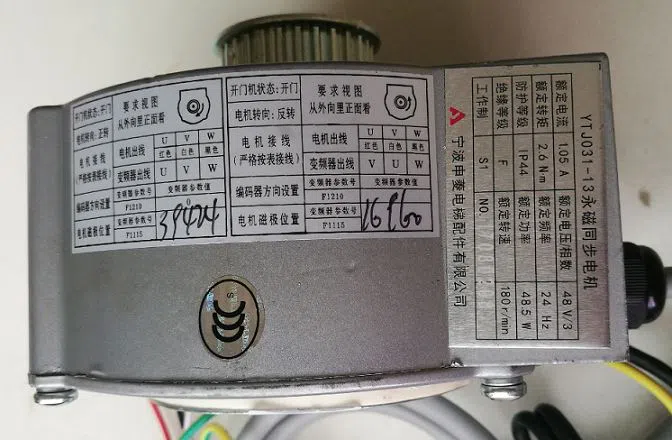 开门机状态:开门
要求视图
从外向里正面看
电机转向:正转
电机接线
(严格按表接线)
电机出线 U V W
红色 白色 黑色
变频器出线 U V W
编码器方向设置
变频器参数号 变频器参数值
F1210 0
电机磁极位置 F1115 39424
开门机状态:开门
要求视图
从外向里正面看
电机转向:反转
电机接线
(严格按表接线)
电机出线 U V W
红色 白色 黑色
变频器出线 V U W
编码器方向设置
变频器参数号 变频器参数值
F1210
电机磁极位置 F1115
YTJ031-13永磁同步电机
额定电流 1.05 A 额定电压/相数 48 V/3
额定转矩 2.6 N·m 额定频率 24 Hz
防护等级 IP44 额定功率 48.5 W
绝缘等级 F 额定转速 180r/min
工作制 S1 NO.
宁波申菱电梯配件有限公司
CCC
S